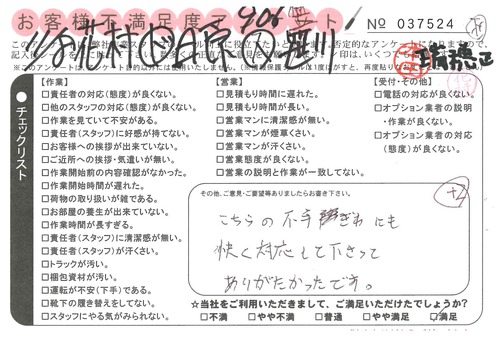 お客様不満足度
No 037524
チェックリスト
【作業】
□責任者(態度)が良くない。
□他のスタッフの対応(態度)が良くない。
□作業を見ていて不安がある。
□責任者(スタッフ)に好感が持てない。
□お客様への挨拶が出来ていない。
□ご近所への挨拶・気遣いが無い。
□作業開始前の内容確認がなかった。
□作業開始時間が遅れた。
□荷物の取り扱いが雑である。
□お部屋の養生が出来ていない。
□作業時間が長すぎる。
□責任者(スタッフ)に清潔感が無い。
□責任者(スタッフ)が汗くさい。
□トラックが汚い。
□梱包資材が汚い。
□運転が不安(下手)である。
□靴下の履き替えをしてない。
□スタッフにやる気がみられない。
【営業】
□見積もり時間に遅れた。
□見積もり時間が長い。
□営業マンに清潔感が無い。
□営業マンが煙草くさい。
□営業マンが汗くさい。
□営業態度が良くない。
□営業の説明と作業が一致してない。
【受付・その他】
□電話の対応が良くない。
□オプション業者の説明
・作業が良くない。
□オプション業者の対応
(態度)が良くない。
その他、ご意見・ご要望等ありましたらお書き下さい。
+2
こちらの不手際にも
快く対応して下さって
ありがたかったです。
☆当社をご利用いただきまして、ご満足いただけたでしょうか?
□不満 □やや不満 □普通 □やや満足 □満足